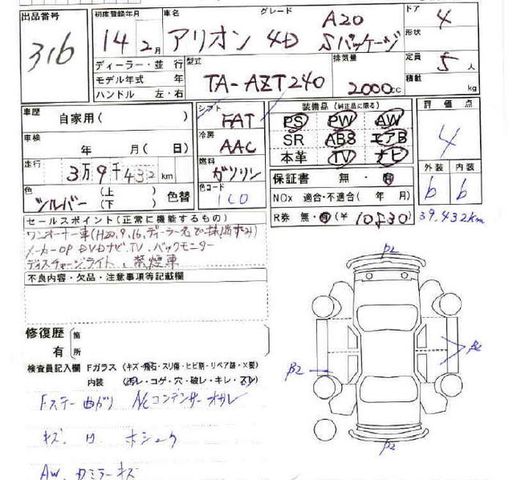 出品番号 316
初度登録年月 14年2月
車名 アリオン 4D
グレード A20 Sパッケージ
ドア 4
形状
ディーラー・並行
モデル年式 年
ハンドル 左・右
型式 TA-AZT240
排気量 2000cc
定員 5人
積載 kg
車歴 自家用( )
シフト FAT
装備品(純正品に限る)
評価点 4
車検 年 月( 日)
冷房 AAC
PS PW AW
SR ABS エアB
本革 TV ナビ
走行 3万9千432km
燃料 ガソリン
保証書 無・
外装 内装
b b
色 シルバー (上) (下) 色替
色コード 1C0
NOx 適合・不適合( 年 月)
R券 無・ (¥ 10530)
39,432km
セールスポイント(正常に機能するもの)
ワンオーナー車
メーカーOP DVDナビ、TV、バックモニター
ディスチャージライト、禁煙車
不良内容・欠品・注意事項等記載欄
修復歴 箇所
有
検査員記入欄 Fガラス (キズ・飛石・スリ傷・ヒビ割・リペア跡・X要)
内装 (汚レ・コゲ・穴・破レ・キレ・ )
Fステー曲がり A/Cコンデンサー
キズ 凹
AW、ミラーキズ